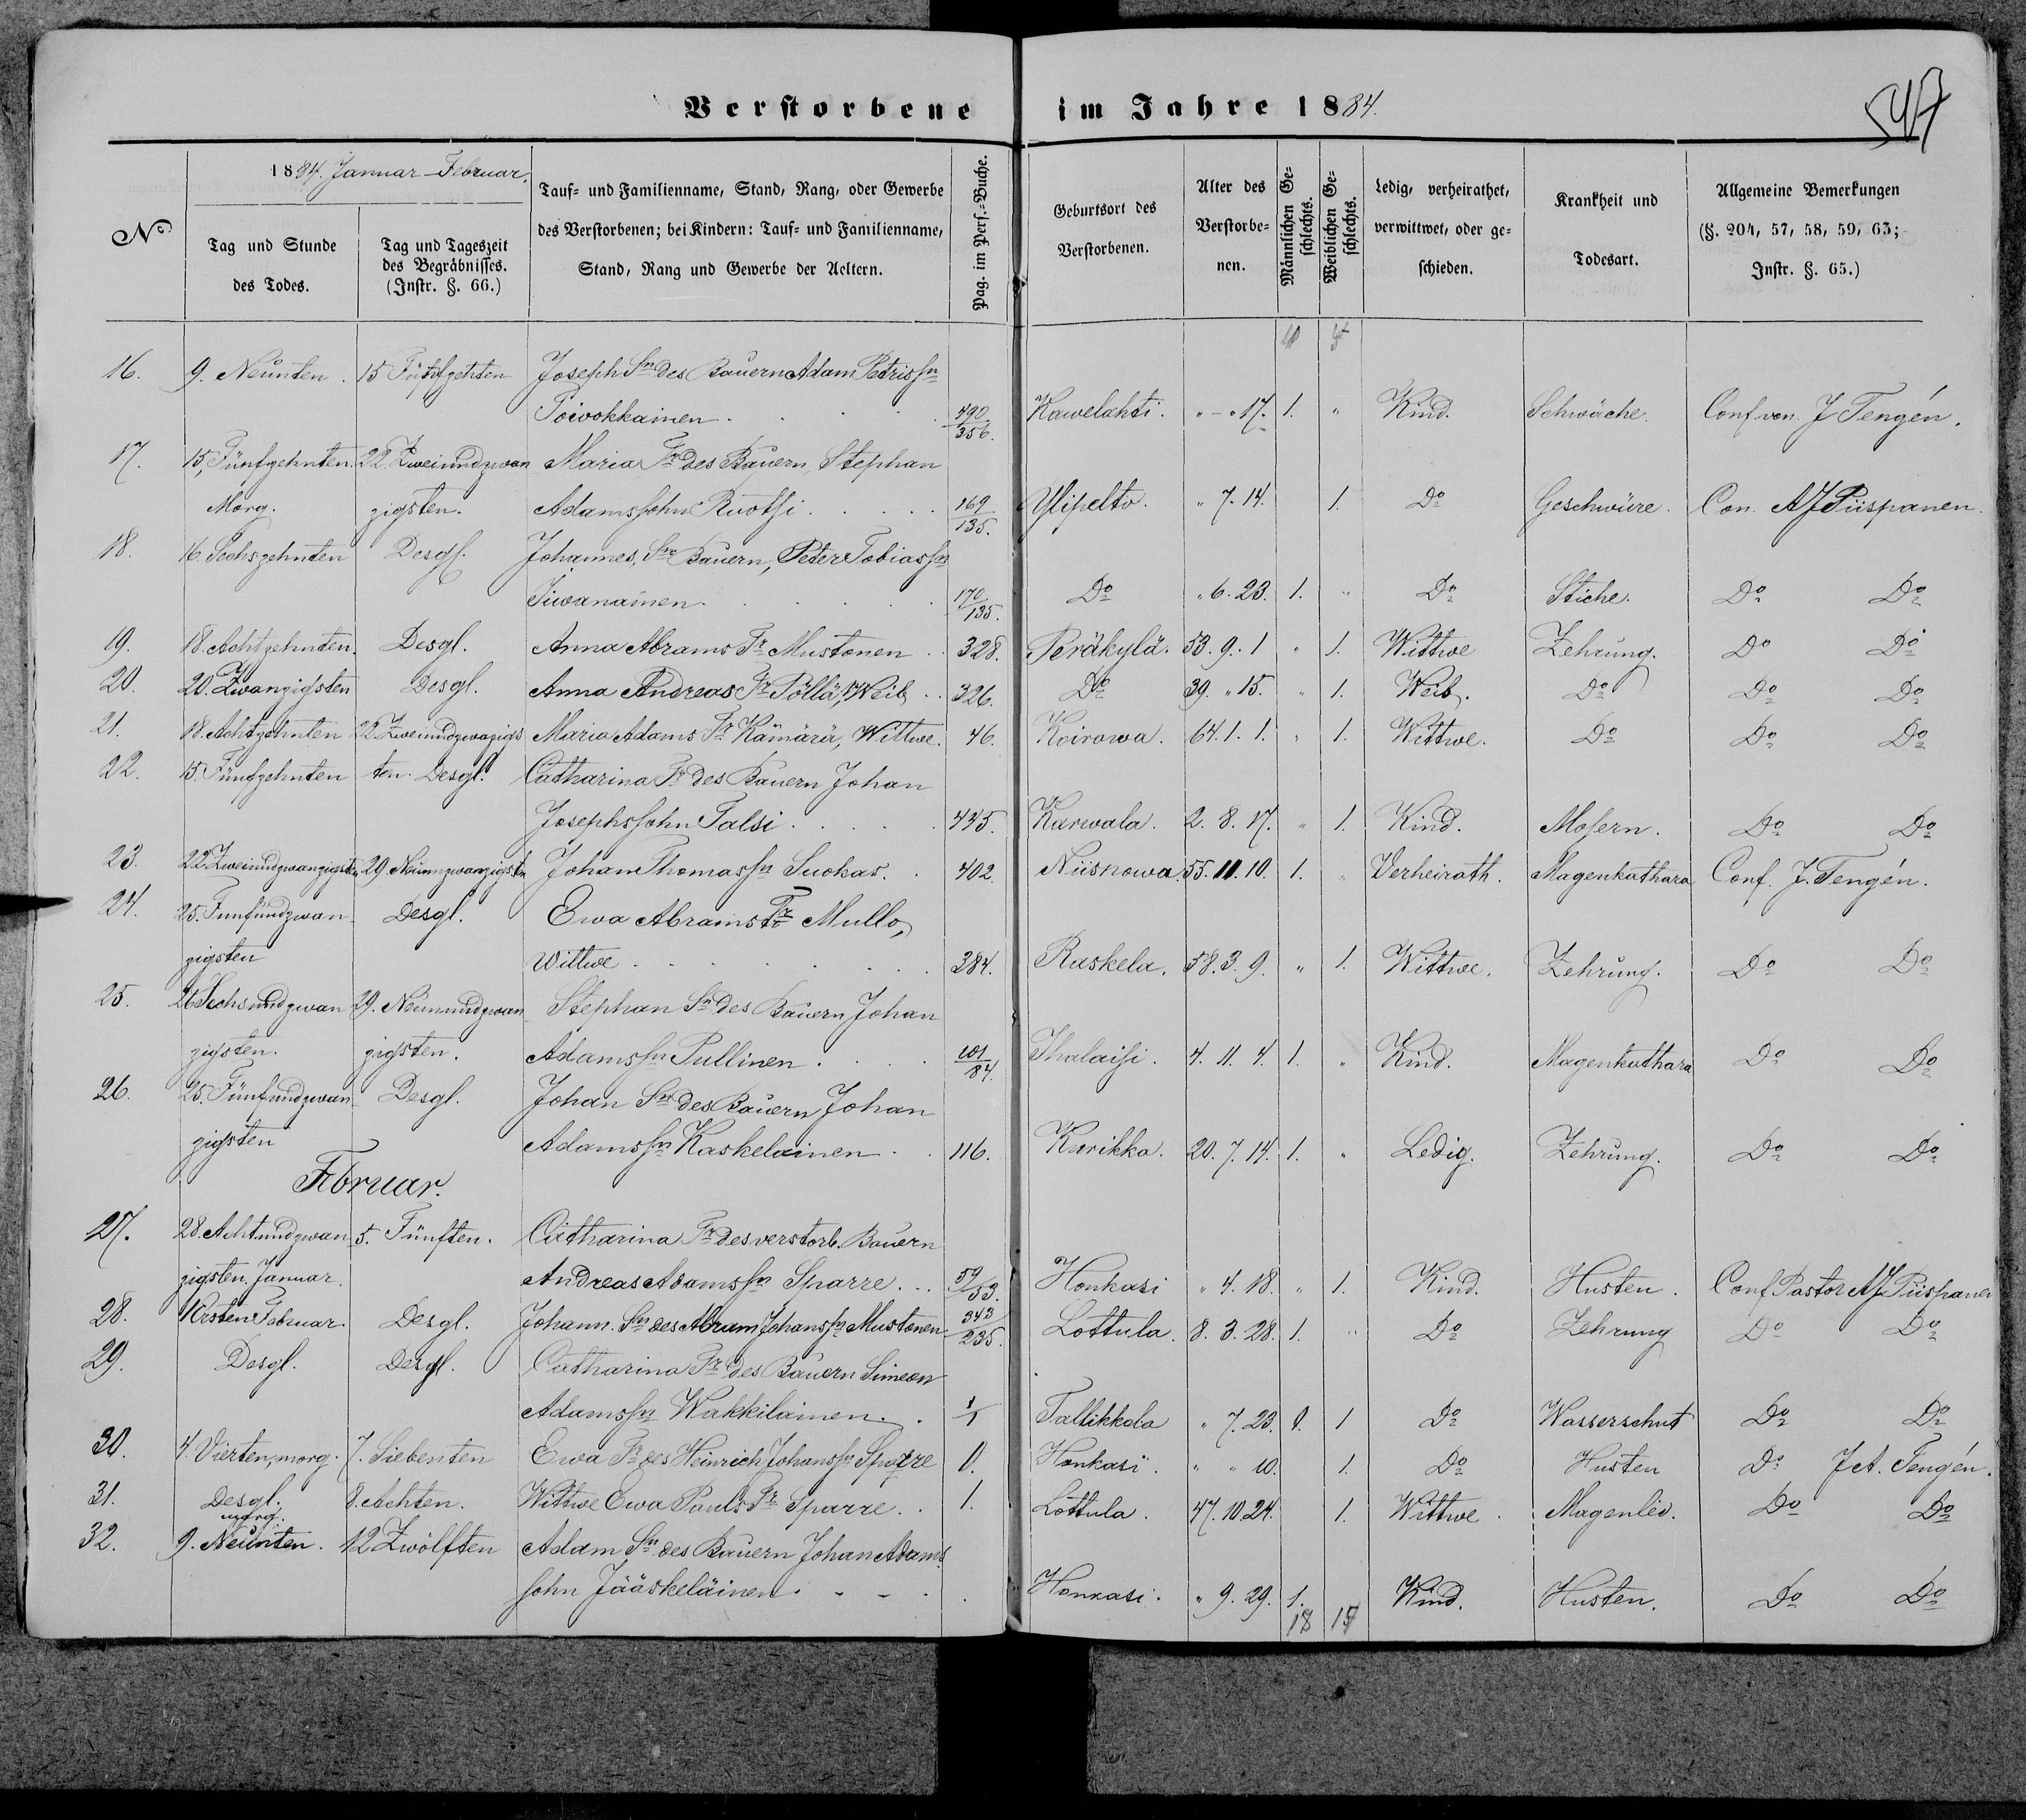 Verstorbene im Jahre 1884.
547
1884. Januar-Februar.
No
Tag und Stunde
des Todes.
Tag und Tageszeit
des Begräbnisses.
(Instr. §. 66.)
Tauf- und Familienname, Stand, Rang, oder Gewerbe
des Verstorbenen; bei Kindern: Tauf- und Familienname,
Stand, Rang und Gewerbe der Aeltern.
Pag. im Pers.-Buche.
Geburtsort des
Verstorbenen.
Alter des
Verstorbe-
nen.
Männlichen Ge-
schlechts.
Weiblichen Ge-
schlechts.
Ledig, verheirathet,
verwittwet, oder ge-
schieden.
Krankheit und
Todesart.
Allgemeine Bemerkungen
(§. 204, 57, 58, 59, 63;
Instr. §. 65.)
16. 9. Neunten. 15 Fünfzehten Joseph Sn des Bauern Adam Petrissn
Toivokkainen. 490/356. Kawelahti. " - " 17. 1. " Kind. Schwäche. Conf. von J Tengén.
17. 15, Fünfzehnten. 22. Zweiundzwan Maria Tr des Bauern, Stephan
Morg. zigsten. Adamssohn Ruotsi. 169/135. Ylipelto. " 7. 14. 1. Do Geschwüre. Con. AJPiispanen.
18. 16. Sechszehnten Desgl. Johannes, Sn Bauern, Peter Tobiassn
Jiwanainen. 170/135. Do " 6. 23. 1. " Do Stiche. Do Do
19. 18. Achtzehnten. Desgl. Anna Abrams Tr Mustonen. 328. Peräkylä. 53. 9. 1 " 1. Wittwe Zehrung. Do Do
20. 20. Zwanzigsten Desgl. Anna Andreas Tr Pöllä, Weib. 326. Do 39. " 15. " 1. Weib. Do Do Do
21. 18. Achtzehnten 22. Zweiundzwazigs Maria Adams Tr Kämärä, Wittwe. 46. Koirowa. 64. 1. 1. " 1. Wittwe. Do Do Do
22. 15. Fünfzehnten ten. Desgl. Catharina Tr des Bauern Johan
Josephssohn Talsi. 435. Karwala. 2. 8. 17. " 1. Kind. Mosern. Do Do
23. 22. Zweiundzwanzigsten 29. Neunzwanzigstn Johan Thomassn Suokas. 402. Niisnowa. 55. 11. 10. 1. " Verheirath. Magenkathara Conf. J. Tengén.
24. 25. Funfundzwan Desgl. Ewa Abrams Tr Mullo,
zigsten Wittwe 384. Raskela. 58. 3. 9. " 1. Wittwe. Zehrung. Do Do
25. 26 Sechsundzwan 29. Neunundzwan Stephan Sn des Bauern Johan
zigsten. zigsten. Adamssn Pullinen. 101/84. Ihalaisi. 4. 11. 4. 1. " Kind. Magenkathara Do Do
26. 25. Fünfundzwan Desgl. Johan Sn des Bauern Johan
zigsten Adamssn Kaskelainen. 116. Kurikka. 20. 7. 14. 1. " Ledig. Zehrung. Do Do
Februar.
27. 28. Achtundzwan 5. Fünften. Catharina Tr des verstorb. Bauern
zigsten. Januar. Andreas Adamssn Sparre. 59/53. Honkasi " 4. 18. " 1. Kind. Husten. Conf Pastor AJ Piispanen
28. 1 Ersten Februar. Desgl. Johann. Sn des Abram Johanssn Mustonen 343/235. Lottula. 8. 3. 28. 1. " Do Zehrung Do Do
29. Desgl. Desgl. Catharina Tr des Bauern Simeon
Adamssn Wakkilainen. 1/1 Tallikkola " 7. 23. 1 Do Wasserschut Do Do
30. 4. Vierten, morg. 7. Siebenten Ewa Tr des Heinrich Johanssn Sparre 0. Honkasi. " " 10. 1. Do Husten Do J A. Tengén.
31. Desgl. morg. 8. Achten. Wittwe Ewa Pauls Tr Sparre. 1. Lottula. 47. 10. 24. 1. Wittwe. Magenleid. Do Do
32. 9. Neunten. 12 Zwölften Adam Sn des Bauern Johan Adams
sohn Jääskeläinen. Honkasi. " 9. 29. 1. Kind. Husten. Do Do